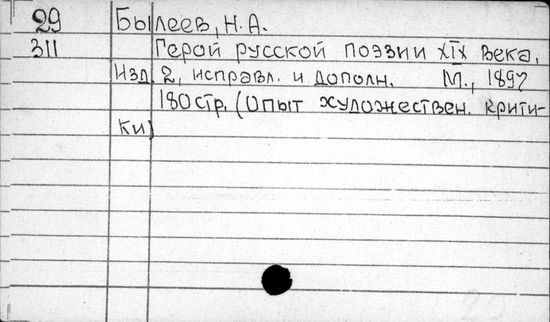 29 Былеев, Н.А.
311 Герой русской поэзии XIX века.
Изд. 2, исправл. и дополн. М., 1897
180 стр. (Опыт художествен. крити-
ки)